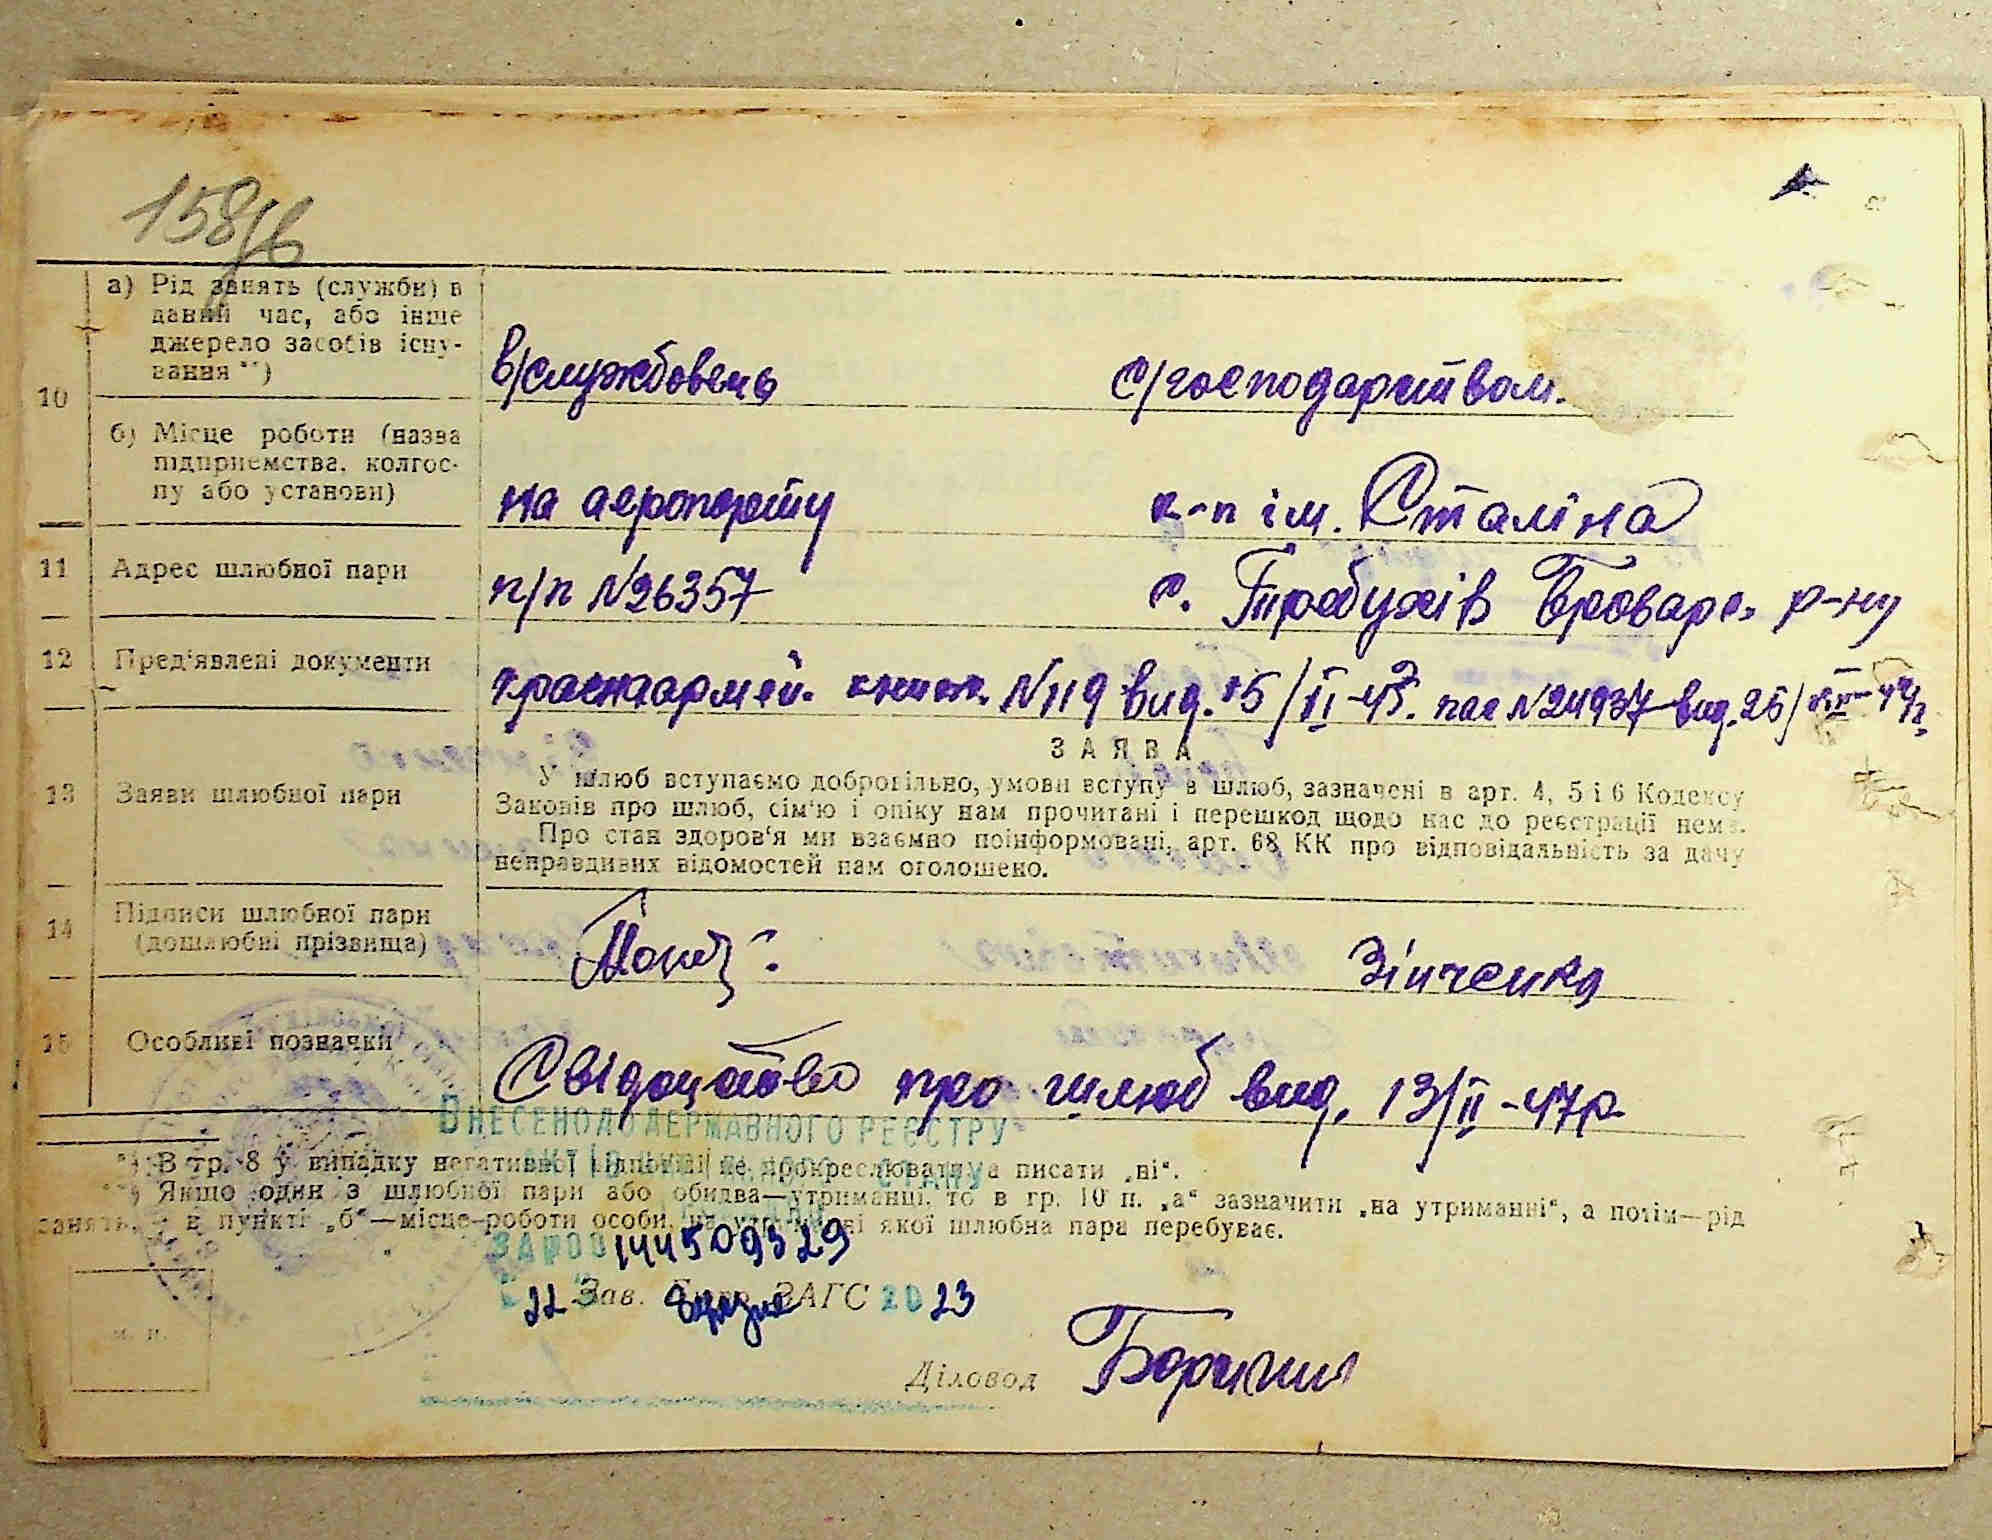 158
10
а) Рід занять (служби) в
даний час, або інше
джерело засобів існу-
вання **)
в/службовець
с/господарством.
б) Місце роботи (назва
підприємства, колгос-
пу або установи)
на аеропорту
к-п ім. Сталіна
11
Адрес шлюбної пари
п/п №26357
с. Требухів Броварс. р-ну
12
Пред'явлені документи
красноармей. книж. №119 вид. 15/II-43. пас №24937 вид. 26/
13
Заяви шлюбної пари
ЗАЯВА
У шлюб вступаємо добровільно, умови вступу в шлюб, зазначені в арт. 4, 5 і 6 Кодексу
Законів про шлюб, сім'ю і опіку нам прочитані і перешкод щодо нас до реєстрації нема.
Про стан здоров'я ми взаємно поінформовані, арт. 68 КК про відповідальність за дачу
неправдивих відомостей нам оголошено.
14
Підписи шлюбної пари
(дошлюбні прізвища)
Зінченко
15
Особливі позначки
Свідоцтво про шлюб вид. 13/II-47р.
ВНЕСЕНО ДО ДЕРЖАВНОГО РЕЄСТРУ
*) В гр. 8 у випадку негативної відповіді не прокреслювати, а писати „ні“.
**) Якщо один з шлюбної пари або обидва—утриманці, то в гр. 10 п. „а“ зазначити „на утриманні“, а потім—рід
занять, в пункті „б“—місце роботи особи, на утриманні якої шлюбна пара перебуває.
ЗА № 00144509329
"22" грудня 2023
Зав. Бюро ЗАГС
м. п.
Діловод